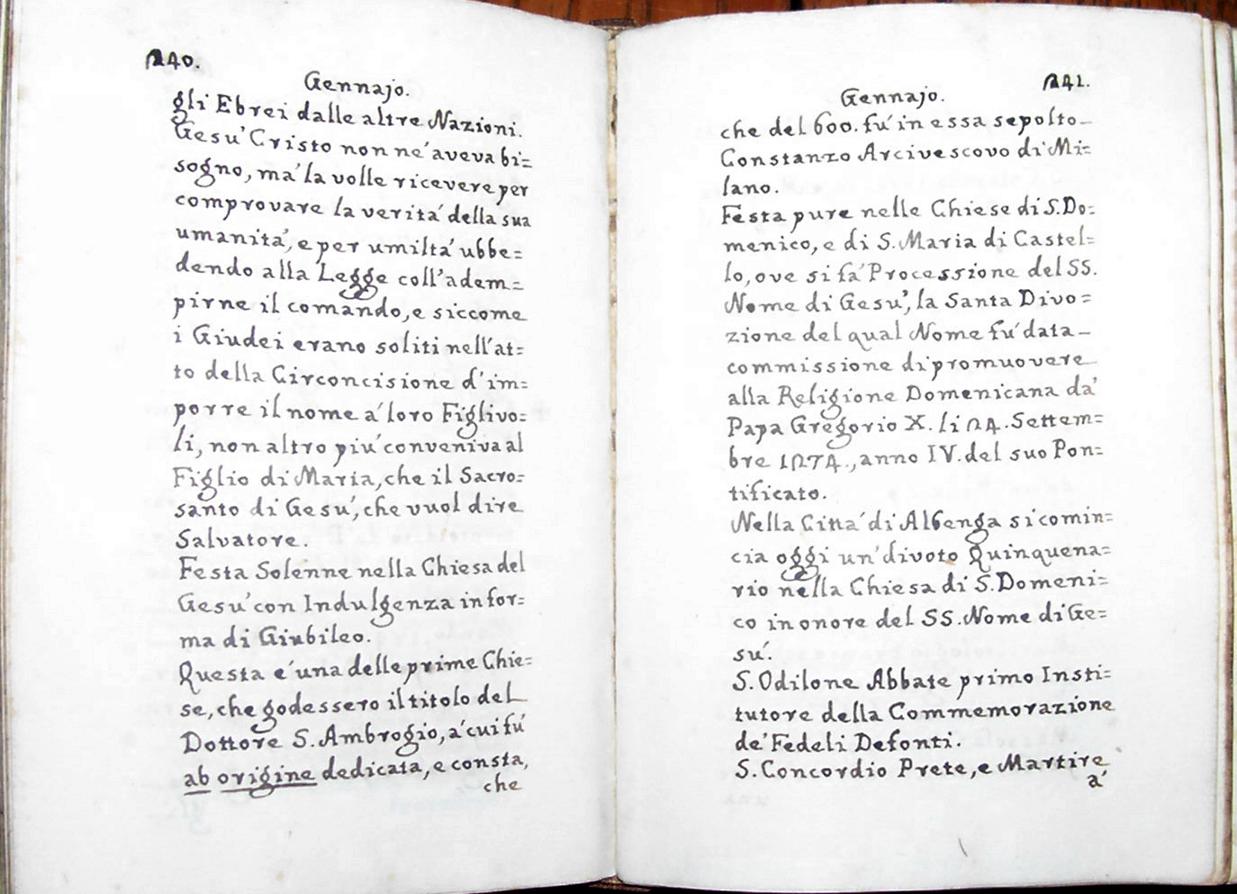 240.
Gennajo.
gli Ebrei dalle altre Nazioni.
Gesu' Cristo non ne' aveva bi=
sogno, ma' la volle ricevere per
comprovare la veritá della sua
umanitá, e per umiltá ubbe=
dendo alla Legge coll'adem=
pirne il comando, e siccome
i Giudei erano soliti nell'at=
to della Circoncisione d'im=
porre il nome á loro Figlivo=
li, non altro piú conveniva al
Figlio di Maria, che il Sacro=
santo di Gesú, che vuol dire
Salvatore.
Festa Solenne nella Chiesa del
Gesú con Indulgenza in for=
ma di Giubileo.
Questa é una delle prime Chie=
se, che godessero il titolo del
Dottore S. Ambrogio, á cui fú
ab origine dedicata, e consta,
che
241.
Gennajo.
che del 600. fú in essa sepolto
Constanzo Arcivescovo di Mi=
lano.
Festa pure nelle Chiese di S. Do=
menico, e di S. Maria di Castel=
lo, ove si fá Processione del SS.
Nome di Gesu', la Santa Divo=
zione del qual Nome fú data
commissione di promuovere
alla Religione Domenicana dá
Papa Gregorio X. li 24. Settem=
bre 1274., anno IV. del suo Pon=
tificato.
Nella Cittá di Albenga si comin=
cia oggi un' divoto Quinquena=
rio nella Chiesa di S. Domeni=
co in onore del SS. Nome di Ge=
sú.
S. Odilone Abbate primo Insti=
tutore della Commemorazione
de' Fedeli Defonti.
S. Concordio Prete, e Martire
á